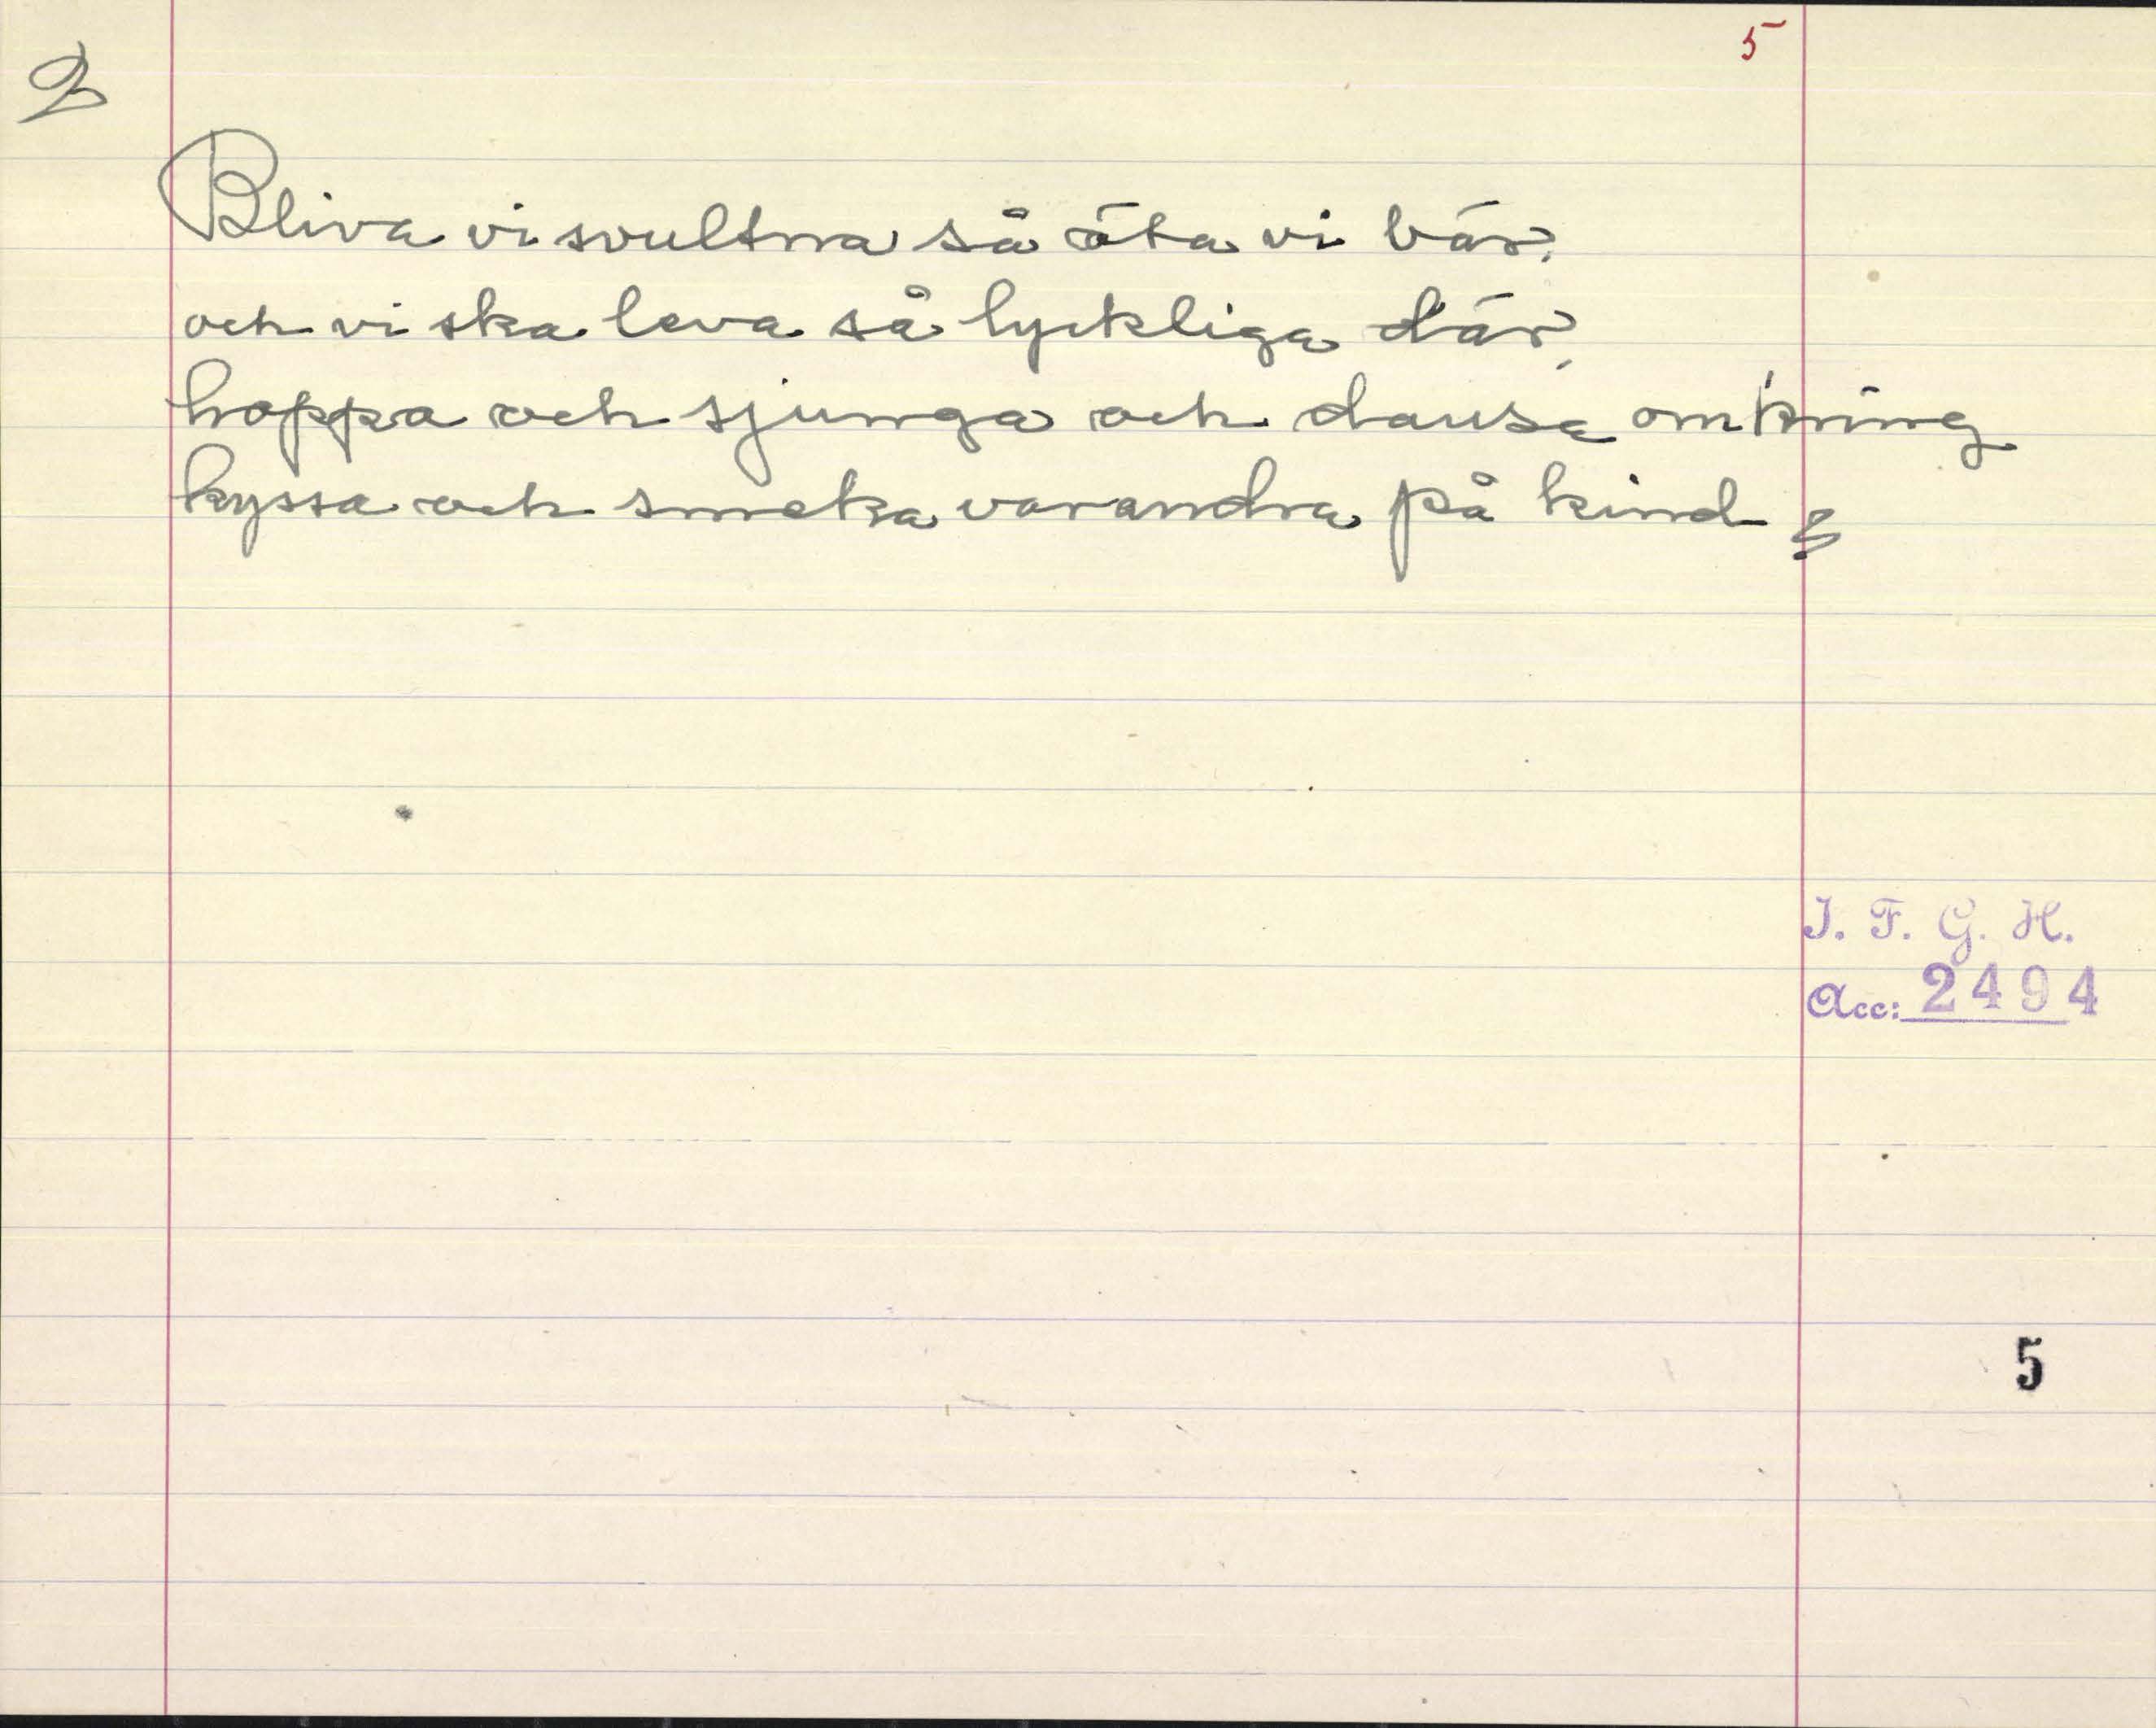 5
2
Bliva vi svultna så äta vi bär,
och vi ska leva så lyckliga där,
hoppa och sjunga och dansa omkring
kyssa och smeka varandra på kind
I. F. G. H.
Acc: 2494
5